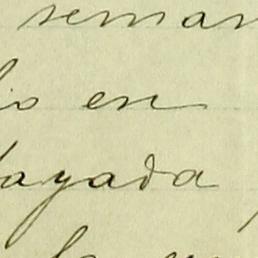 seman
io en
ayada